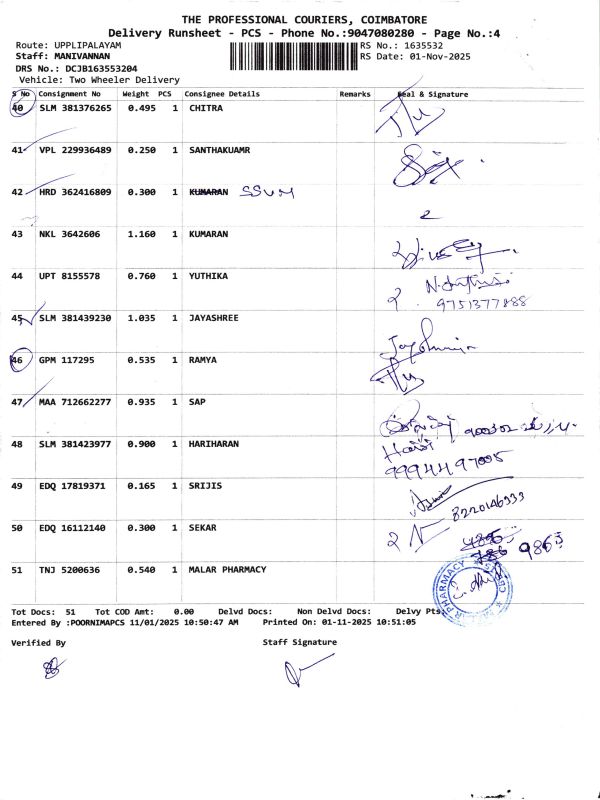 THE PROFESSIONAL COURIERS, COIMBATORE
Delivery Runsheet - PCS - Phone No.:9047080280 - Page No.:4
Route: UPPLIPALAYAM
Staff: MANIVANNAN
DRS No.: DCJB163553204
Vehicle: Two Wheeler Delivery
RS No.: 1635532
RS Date: 01-Nov-2025
S No Consignment No Weight PCS Consignee Details Remarks Seal & Signature
40 SLM 381376265 0.495 1 CHITRA
41 VPL 229936489 0.250 1 SANTHAKUAMR
42 HRD 362416809 0.300 1 KUMARAN SSVM
2
43 NKL 3642606 1.160 1 KUMARAN
44 UPT 8155578 0.760 1 YUTHIKA
2 9751377888
45 SLM 381439230 1.035 1 JAYASHREE
46 GPM 117295 0.535 1 RAMYA
47 MAA 712662277 0.935 1 SAP
48 SLM 381423977 0.900 1 HARIHARAN
Hari
9994497005
49 EDQ 17819371 0.165 1 SRIJIS
8220146333
50 EDQ 16112140 0.300 1 SEKAR
2 9865
51 TNJ 5200636 0.540 1 MALAR PHARMACY
PHARMACY
Tot Docs: 51 Tot COD Amt: 0.00 Delvd Docs: Non Delvd Docs: Delvy Pts:
Entered By :POORNIMAPCS 11/01/2025 10:50:47 AM Printed On: 01-11-2025 10:51:05
Verified By Staff Signature